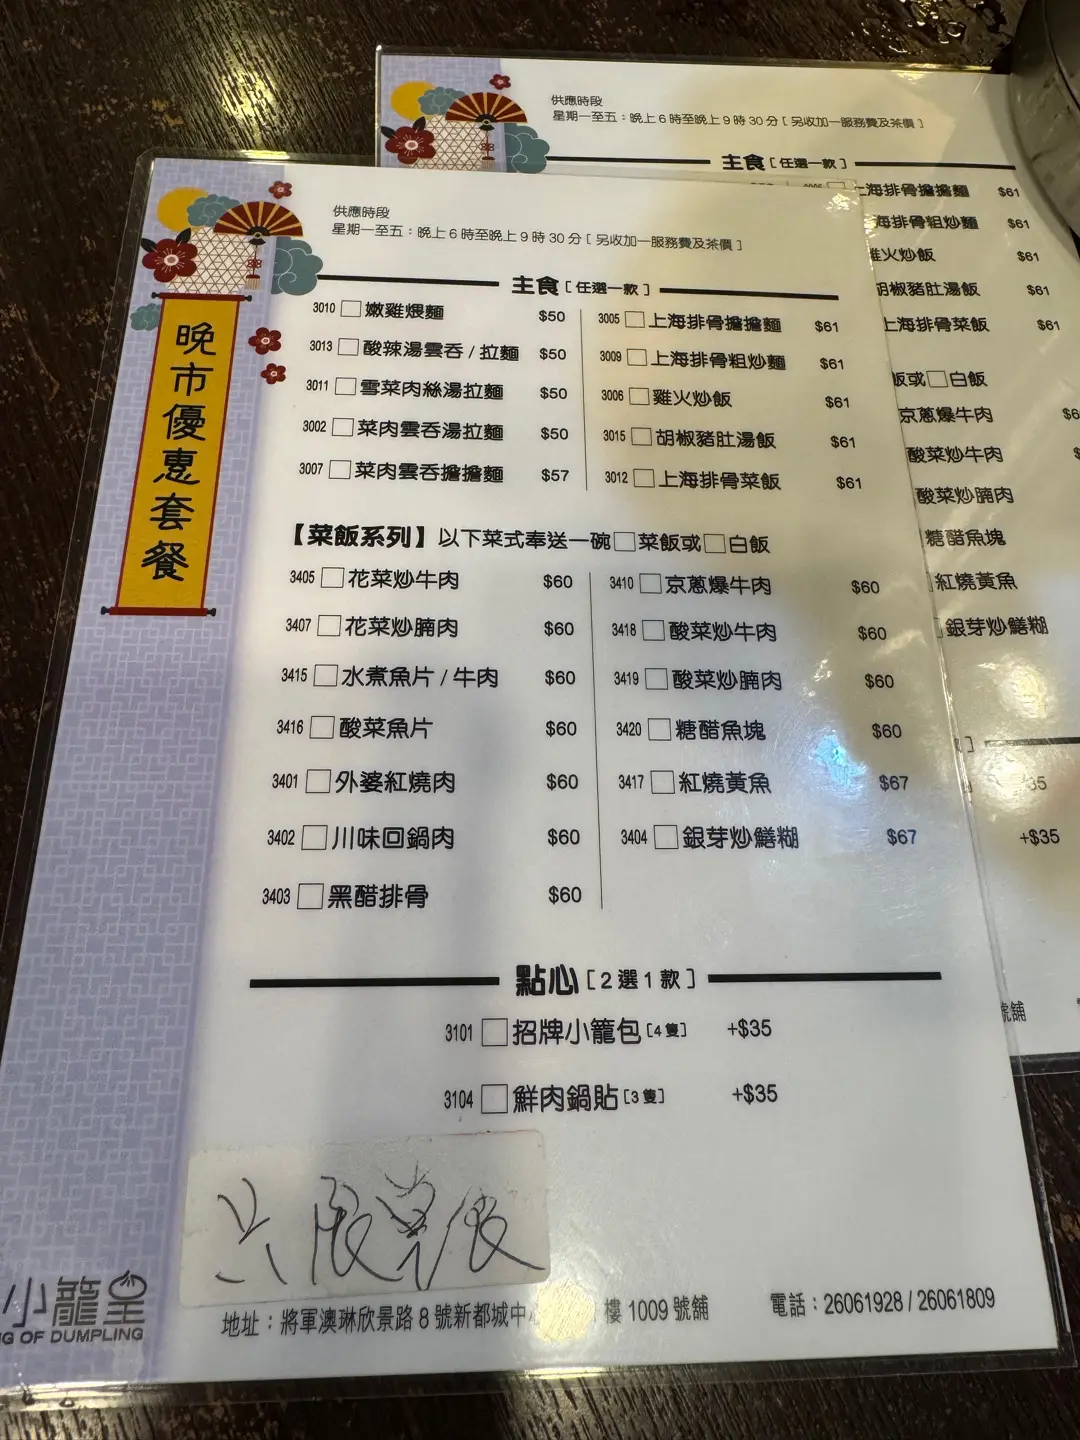 供應時段
星期一至五：晚上6時至晚上9時30分[另收加一服務費及茶價]
主食[任選一款]
上海排骨擔擔麵 $61
海排骨粗炒麵 $61
火炒飯 $61
胡椒豬肚湯飯 $61
上海排骨菜飯 $61
飯或□白飯
京蔥爆牛肉
酸菜炒牛肉
酸菜炒腩肉
糖醋魚塊
紅燒黃魚
銀芽炒鱔糊
35
+$35
號舖
晚市優惠套餐
供應時段
星期一至五：晚上6時至晚上9時30分[另收加一服務費及茶價]
主食[任選一款]
3010 □嫩雞煨麵 $50
3013 □酸辣湯雲吞/拉麵 $50
3011 □雪菜肉絲湯拉麵 $50
3002 □菜肉雲吞湯拉麵 $50
3007 □菜肉雲吞擔擔麵 $57
3005 □上海排骨擔擔麵 $61
3009 □上海排骨粗炒麵 $61
3006 □雞火炒飯 $61
3015 □胡椒豬肚湯飯 $61
3012 □上海排骨菜飯 $61
【菜飯系列】以下菜式奉送一碗□菜飯或□白飯
3405 □花菜炒牛肉 $60
3407 □花菜炒腩肉 $60
3415 □水煮魚片/牛肉 $60
3416 □酸菜魚片 $60
3401 □外婆紅燒肉 $60
3402 □川味回鍋肉 $60
3403 □黑醋排骨 $60
3410 □京蔥爆牛肉 $60
3418 □酸菜炒牛肉 $60
3419 □酸菜炒腩肉 $60
3420 □糖醋魚塊 $60
3417 □紅燒黃魚 $67
3404 □銀芽炒鱔糊 $67
點心[2選1款]
3101 □招牌小籠包[4隻] +$35
3104 □鮮肉鍋貼[3隻] +$35
小籠皇
NG OF DUMPLING
地址：將軍澳琳欣景路8號新都城中 樓1009號舖
電話：26061928/26061809